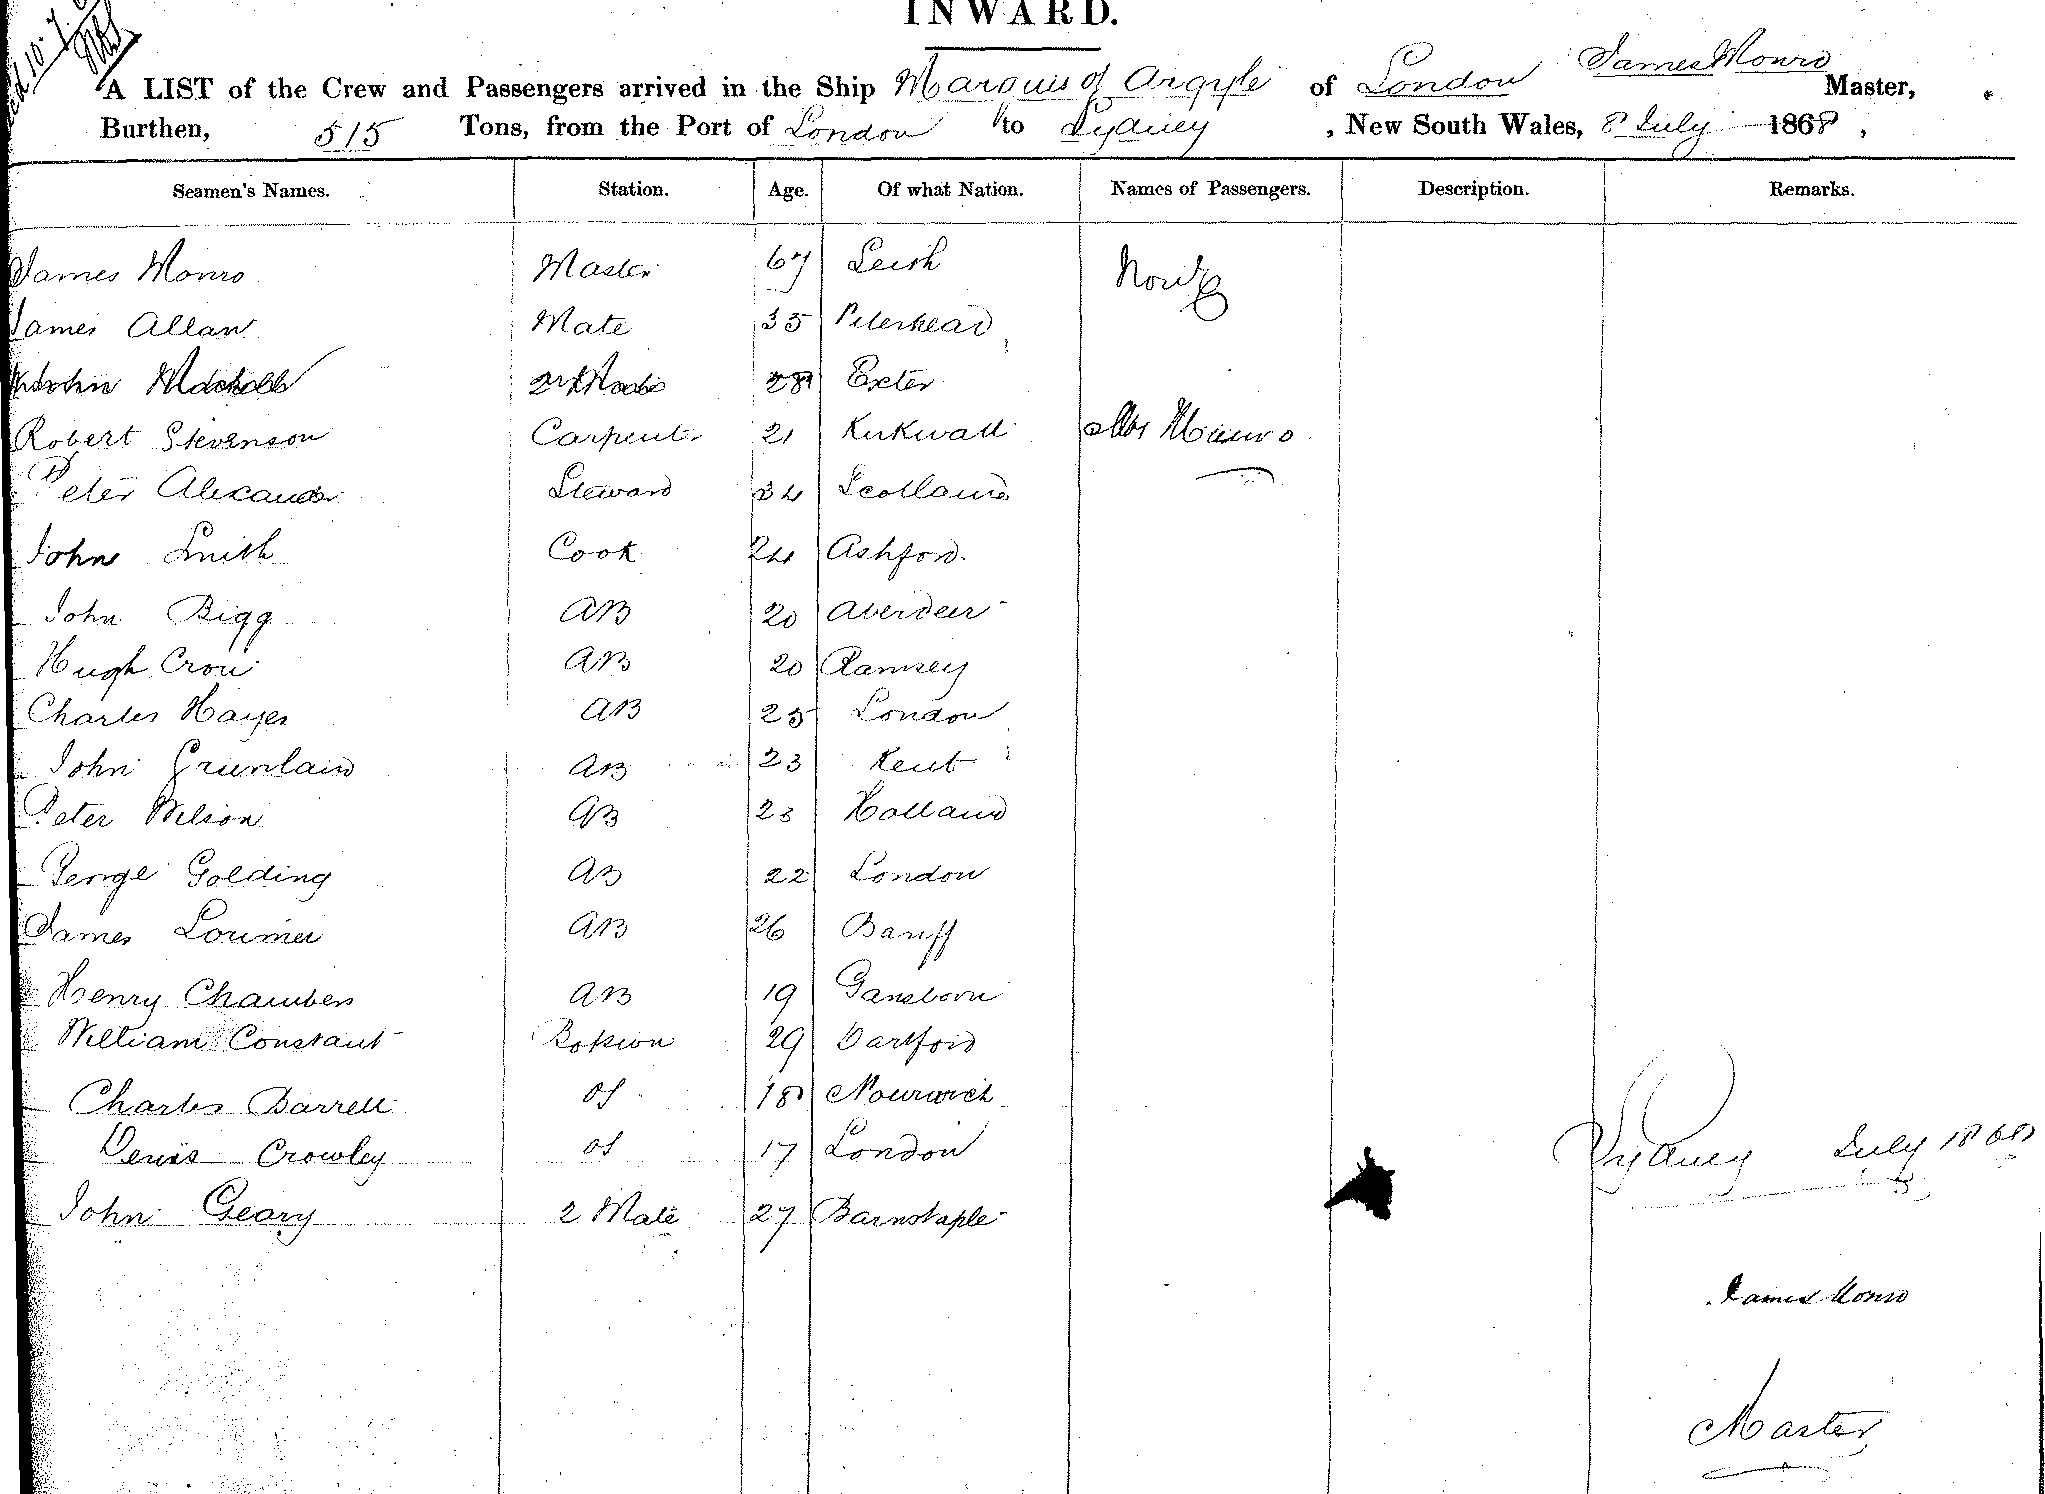 INWARD.
A LIST of the Crew and Passengers arrived in the Ship Marquis of Argyle of London James Monro Master,
Burthen, 515 Tons, from the Port of London to Sydney, New South Wales, 8 July 1868,
Seamen's Names. Station. Age. Of what Nation. Names of Passengers. Description. Remarks.
James Monro Master 67 Leith
James Allan Mate 35 Peterhead
John 28 Exeter
Robert Stevenson Carpenter 21 Kirkwall Mrs Munro
Peter Alexander Steward 34 Scotland
John Smith Cook 24 Ashford.
John Bigg AB 20 Aberdeen
Hugh Crow AB 20 Ramsey
Charles Hayes AB 25 London
John AB 23 Kent
Peter Wilson AB 23 Holland
George Golding AB 22 London
James Lorimer AB 26 Banff
Henry Chambers AB 19
William Constant 29 Dartford
Charles Barrett OS 18 Nourwich
Denis Crowley OS 17 London
Sydney July 1868
John Geary 2 Mate 27 Barnstaple
James Monro
Master